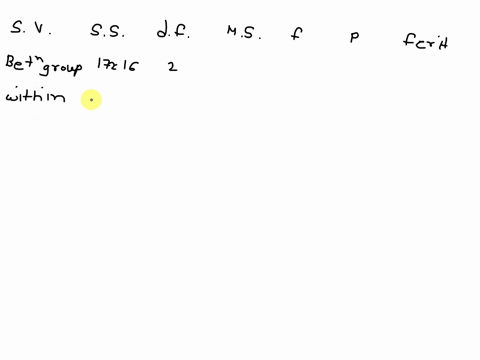 S.V. S.S. d.f. M.S. f P fcrit
Betⁿ group 2
within